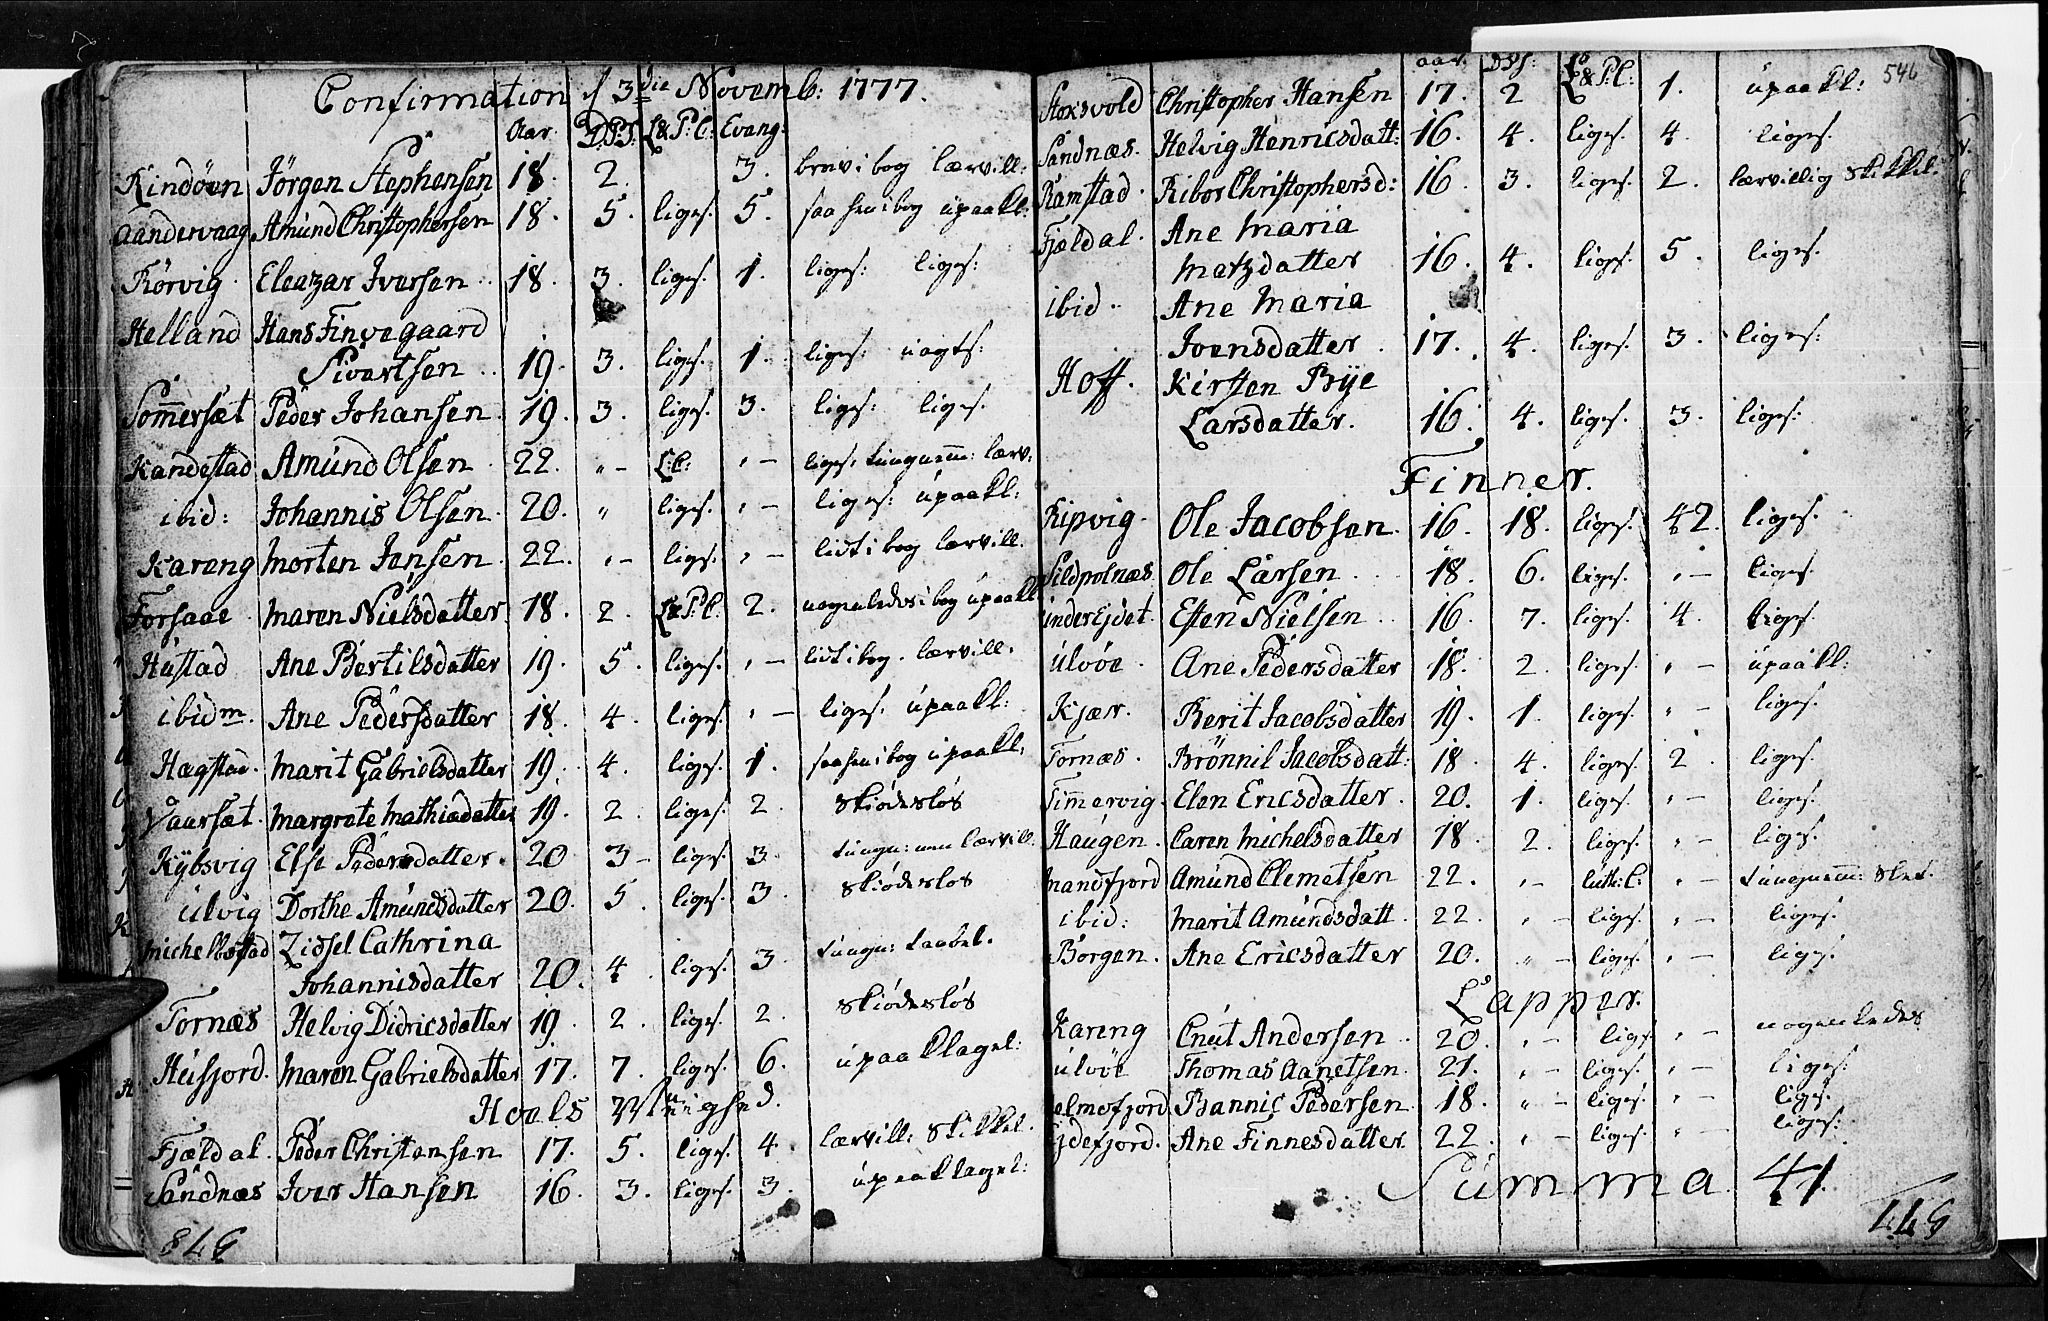 Confirmation d 3die Novemb: 1777.
Aar. D.P.S. L&P:C: Evang:
Kindöen Jörgen Stephensen 18. 2. 3. brav i bog lærvill:
Aandervaag Amund Christophersen 18. 5. liges. 5. saa hen i bog upaakl:
Rörvig Eleazar Iversen 18. 3. liges. 1. liges: liges:
Helland Hans Finvegaard
Sivertsen 19. 3. liges. 1. liges:
Sommersæt Peder Johansen 19. 3. liges. 3. liges: liges.
Kandestad Amund Olsen 22. „ – L:C: „ – liges. tungnem: lærv:
ibid: Johannis Olsen 20. „ liges. „ – liges: upaakl:
Kareng Morten Jensen 22. „ – liges. „ – lidt i bog lærvill.
Forsaae Maren Nielsdatter 18. 2. L&P:C: 2. nogenledes i bog upaakl
Hustad Ane Bertilsdatter 19. 5. liges. „ – lidt i bog. lærvill.
ibidm. Ane Pedersdatter 18. 4. liges. „ – liges. upaakl:
Hægstad. Marit Gabrielsdatter 19. 4. liges. 1. saa hen i bog upaakl:
Vaarsæt. Margrete Mathiadatter 19. 2. liges. 2. skiödeslös
Kybsvig Else Pedersdatter. 20 3 – liges. 3. tungn: men lærvill.
Ulvig Dorthe Amundsdatter 20. 5. liges. 3. skiödeslös
Michelbostad Zidsel Cathrina
Johannisdatter 20. 4. liges. 3. tungn:
Tornæs Helvig Didricsdatter 19. 2. liges. 2. skiödeslös
Husfjord. Maren Gabrielsdatter 17. 7. liges. 6. upaaklagel:
Hoels Menighed.
Fjeldal. Peder Christensen 17. 5. liges. 4. lærvill: skikkel.
Sandnæs Iver Hansen 16. 3. liges. 3. upaaklagel:
546
Aar. D.P.S: L&P:C:
Stoksvold Christopher Hansen 17. 2 1. upaakl:
Sandnæs. Helvig Henricsdatt: 16. 4. liges. 4. liges.
Ramstad. Ribor Christophersd: 16. 3. liges. 2. lærvillig skikkel.
Fjeldal. Ane Maria
Matzdatter 16. 4. liges. 5. liges.
ibid. Ane Maria
Joensdatter 17. 4. liges. 3. liges:
Hoff. Kirsten Bye
Larsdatter. 16. 4. liges. 3. liges:
Finner.
Kipvig. Ole Jacobsen. 16. 18. liges. 42. liges.
Sildpolnæs Ole Larsen 18. 6. liges. „ – liges.
under Ejdet. Esten Nielsen 16. 7. liges. 4. liges.
Ulvöe Ane Pedersdatter 18. 2. liges. „ – upaakl:
Kjær. Berit Jacobsdatter 19. 1. liges. „ – liges.
Tornæs. Brönnil Jacobsdatt: 18. 4. liges. 2. liges.
Timmervig. Elen Ericsdatter. 20. 1. liges. „ – liges.
Haugen. Caren Michelsdatter 18. 2. liges. „ – liges.
Mandfjord Amund Clemetsen 22. „ – Luth:C: „ – tungnem: slet.
ibid: Marit Amundsdatt. 22. „ – liges. „ – liges.
Borgen. Ane Ericsdatter 20. „ – liges. „ – liges.
Lapper.
Kareng Cnut Andersen 20. „ – liges. „ – nogenledes
Ulvöe Thomas Aanetsen. 21. „ – liges. „ – liges:
elmefjord Bannic Pedersen 18. „ – liges. „ – liges.
jdefjord. Ane Finnesdatter 22. „ – liges. „ – liges.
Summa 41.